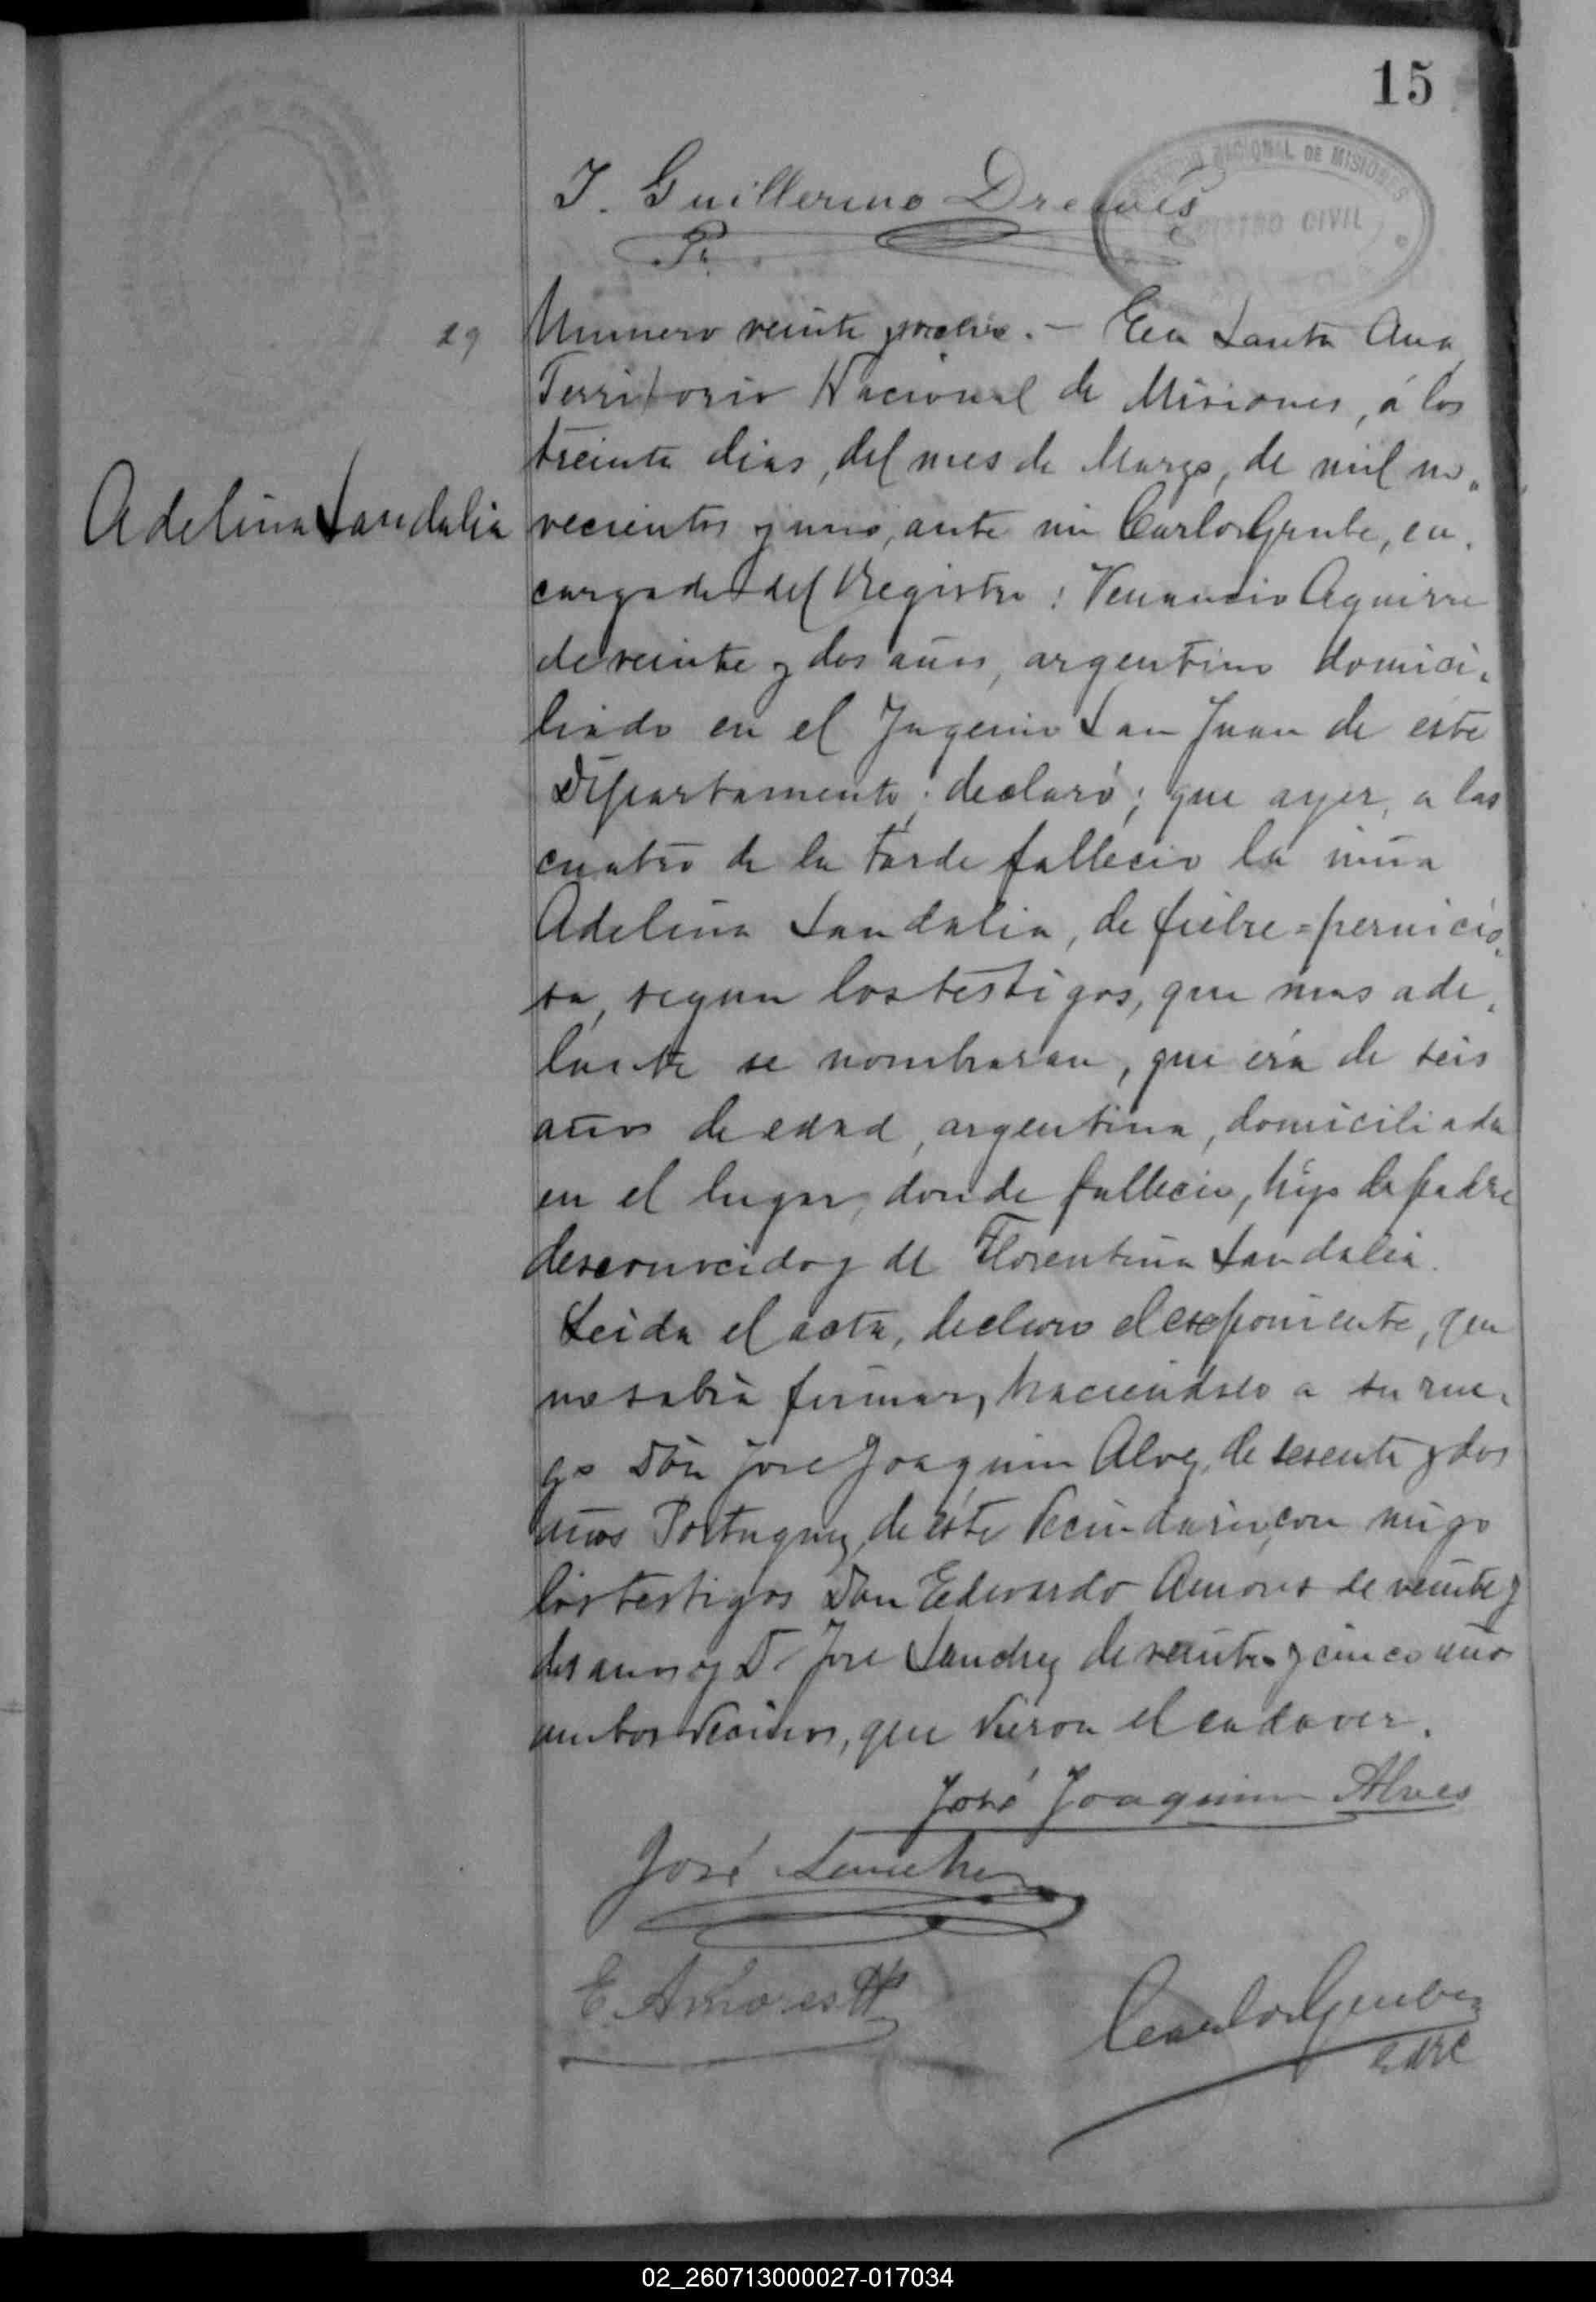 15
TERRITORIO NACIONAL DE MISIONES
REGISTRO CIVIL
J. Guillermo Drewes
29
Numero veinte y nueve. – En Santa Ana
Territorio Nacional de Misiones, á los
treinta dias, del mes de Marzo, de mil no-
Adelina Sandalia
vecientos y uno, ante mi Carlos Grube, en-
cargado del Registro: Venancio Aguirre
de veinte y dos años, argentino domici-
liado en el Ingenio San Juan de este
Departamento; declaró; que ayer, a las
cuatro de la tarde fallecio la niña
Adelina Sandalia, de fiebre=pernicio-
sa, segun los testigos, que mas ade-
lante se nombraran, que era de seis
años de edad, argentina, domiciliada
en el lugar, donde fallecio, hijo de padre
desconocido y de Florentina Sandalia.
Leida el acta, declaro el exponente, que
no sabia firmar, haciendolo a su rue-
go Don Jose Joaquin Alvez, de sesenta y dos
años Portuguez, de este Vecindario, con migo
los testigos Don Eduardo Amores de veinte y
dos anos y D. Jose Sanchez de veinte y cinco año
ambos Vecinos, que vieron el cadaver.
José Joaquim Alves
José Sanchez
E. Amores
Carlos Grube
E. d. R. C.
02_260713000027-017034